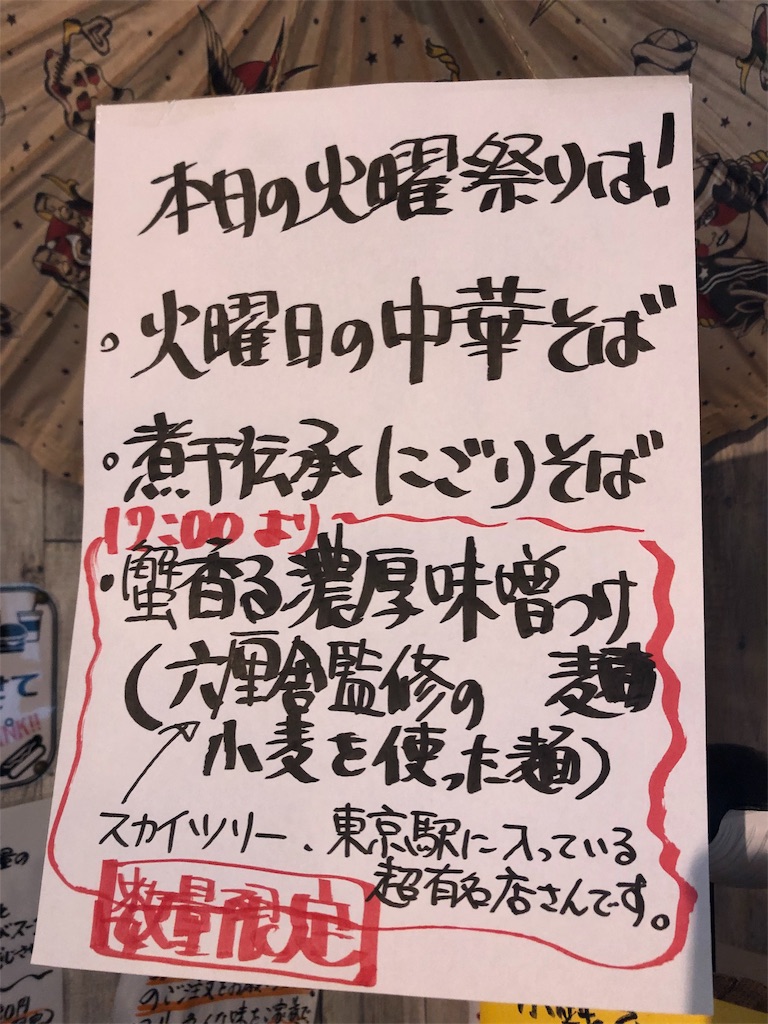 本日の火曜祭りは!
・火曜日の中華そば
・煮干伝承にごりそば
17:00より
・蟹香る濃厚味噌つけ
(六厘舎監修の 麺
小麦を使った麺)
スカイツリー、東京駅に入っている
超有名店さんです。
数量限定